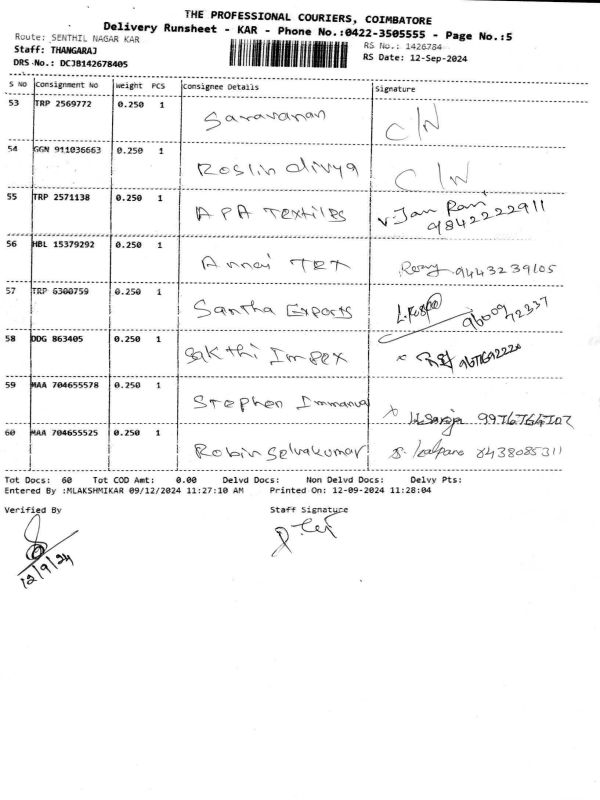 THE PROFESSIONAL COURIERS, COIMBATORE
Delivery Runsheet - KAR - Phone No.:0422-3505555 - Page No.:5
Route: SENTHIL NAGAR KAR
RS No.: 1426784
Staff: THANGARAJ
RS Date: 12-Sep-2024
DRS No.: DCJB142678405
S NO Consignment No Weight PCS Consignee Details Signature
53 TRP 2569772 0.250 1 Saravanan C/N
54 GGN 911036663 0.250 1 Roslin divya C/N
55 TRP 2571138 0.250 1 APA Textiles V. Jan Ram
9842222911
56 HBL 15379292 0.250 1 Annai TEX 9443239105
57 TRP 6300759 0.250 1 Santha Exports 96009
42337
58 DDG 863405 0.250 1 Sakthi Impex
59 MAA 704655578 0.250 1 Stephen Immanuel
60 MAA 704655525 0.250 1 Robin Selvakumar S. Kalpana 8438085311
Tot Docs: 60 Tot COD Amt: 0.00 Delvd Docs: Non Delvd Docs: Delvy Pts:
Entered By :MLAKSHMIKAR 09/12/2024 11:27:10 AM Printed On: 12-09-2024 11:28:04
Verified By Staff Signature
12/9/24